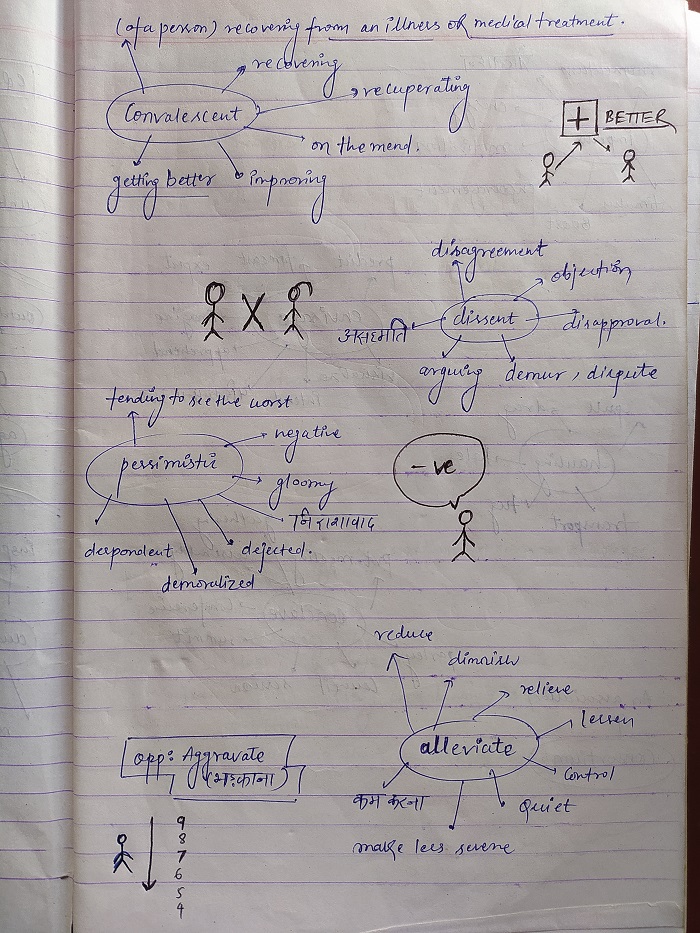 (of a person) recovering from an illness or medical treatment.
recovering
recuperating
Convalescent
on the mend.
getting better
improving
+ BETTER
disagreement
objection
dissent
disapproval.
असहमति
arguing
demur, dispute
X
tending to see the worst
negative
pessimistic
gloomy
निराशावाद
despondent
dejected.
demoralized
-ve
reduce
diminish
relieve
lessen
alleviate
control
Quiet
कम करना
make less severe
opp: Aggravate
(भड़काना)
9
8
7
6
5
4